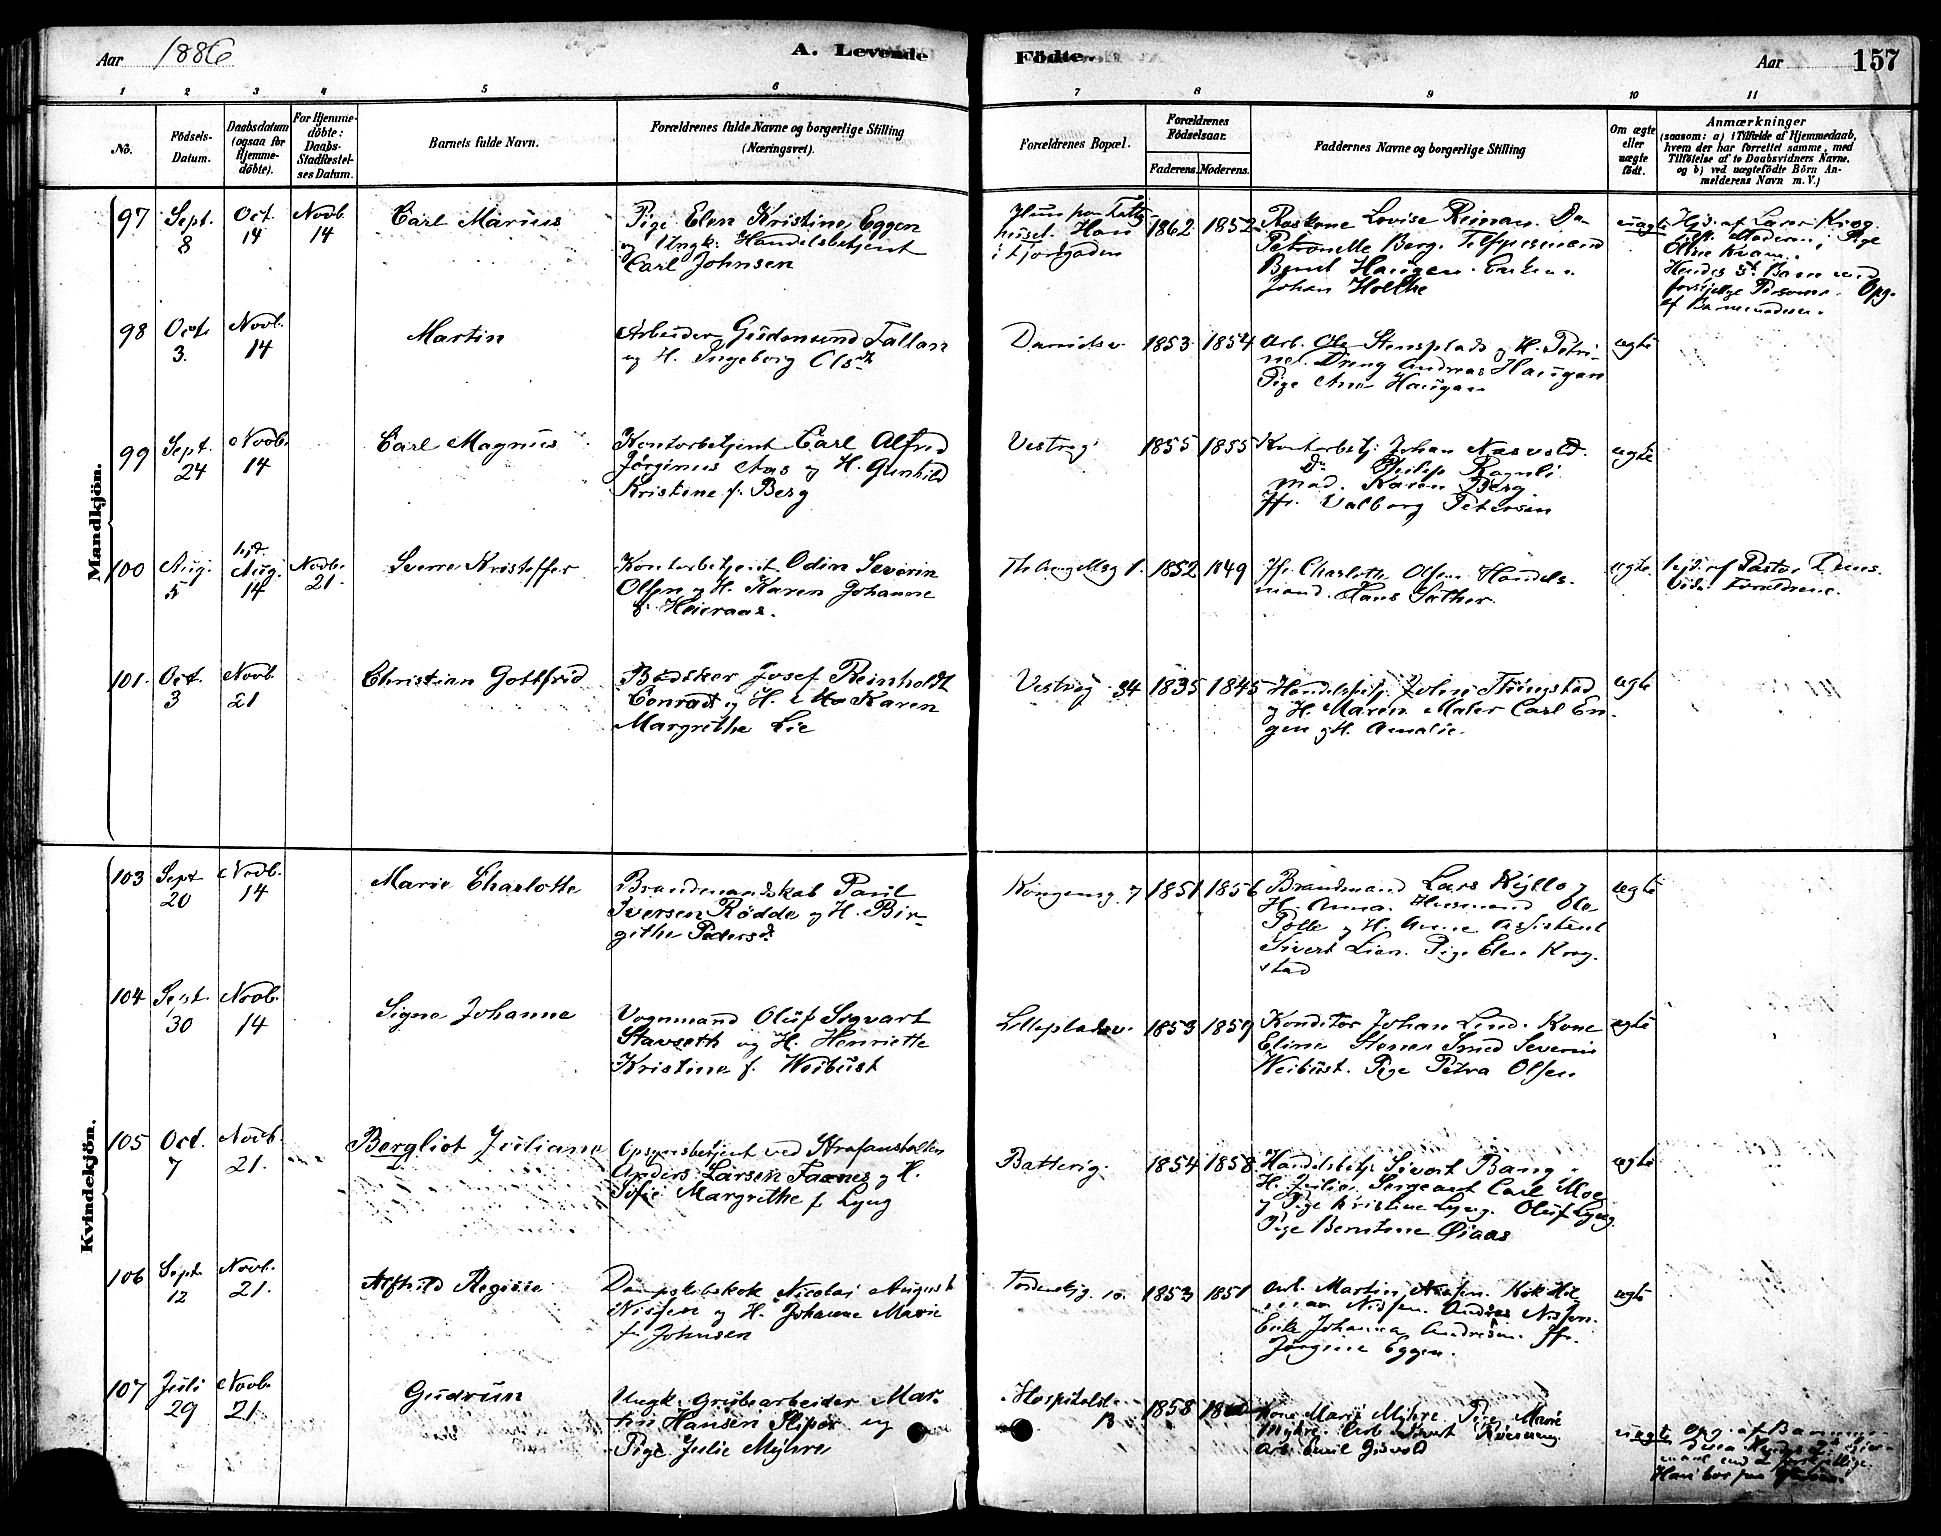 Aar 1886
A. Levende
Födte.
Aar
157
1 2 3 4 5 6 7 8 9 10 11
No.
Födsels-
Datum.
Daabsdatum
(ogsaa for
Hjemme-
döbte).
For Hjemme-
döbte:
Daabs-
Stadfæstel-
ses Datum.
Barnets fulde Navn.
Forældrenes fulde Navne og borgerlige Stilling
(Næringsvei).
Forældrenes Bopæl.
Forældrenes
Födselsaar.
Faderens. Moderens.
Faddernes Navne og borgerlige Stilling
Om ægte
eller
uægte
födt.
Anmærkninger
(saasom: a) i Tilfælde af Hjemmedaab,
hvem der har forrettet samme, med
Tilföielse af to Daabsvidners Navne.
og b) ved uægtefödte Börn An-
melderens Navn m. V.)
Mandkjön.
97 Sept. 8
Oct. 14
Novb. 14
Carl Marius
Pige Elen Kristine Eggen
og Ungk. Handelsbetjent
Carl Johnsen
i Fjordgaden
1862 1852
Petronelle Berg.
Bernt Haugen.
Johan Holthe
uægte
98 Oct. 3.
Novb. 14
Martin
Arbeider Gudmund Fallan
og H. Ingeborg Olsdr
1853 1854
Arb. Ole Stensplads og H. Petri-
ne. Dreng Andreas Haugan
Pige Ane Haugan
ægte
99 Sept. 24
Novb. 14
Carl Magnus
Kontorbetjent Carl Alfred
Jørginus Aas og H. Gunhild
Kristine f. Berg
Vestreg.
1855 1855
Kontorbetj. Johan Næsvold.
Do Philip Ragnli
Mad. Karen Berg
Jfr. Valborg Petersen
ægte
100 Aug. 5
hjd. Aug. 14
Novb. 21.
Sverre Kristoffer
Kontorbetjent Odin Severin
Olsen og H. Karen Johanne
f. Heieraas.
Th. Angellsg 1.
1852 1849
Jfr. Charlotte Olsen. Handels-
mand. Hans Sæther.
ægte
hjd. af Pastor
Vidn. Forældrene.
101. Oct. 3
Novb. 21
Christian Gottfred
Bødker Josef Reinholdt
Conradt og H. Karen
Margrethe Lie
Vestreg 34
1835 1845
og H. Maren Maler Carl En-
gen og H. Amalie.
ægte
Kvindekjön.
103 Sept 20
Novb. 14
Marie Charlotte
Paul
Iversen Rødde og H. Bir-
githe Pedersd.
Kongensg. 7
1851 1856
Brandmand Lars Kyllo og
H. Anna. Husmand Ole
og H. Anne Assistent
Sivert Lien. Pige Elen Krog-
stad
ægte
104 Sept. 30
Novb. 14
Signe Johanne
Vognmand Oluf Sigvart
Stavseth og H. Henriette
Kristine f. Weibust
1853 1857
Konditor Johan Lind. Kone
Eline Stener Smed Severin
Weibust. Pige Petra Olsen
ægte
105 Oct. 7
Novb. 21.
Bergliot Juliane
Opsynsbetjent ved Strafanstalten
Anders Larsen Faanes og H.
Sofie Margrethe f Lyng
Batterig.
1854 1858
Handelsbetj. Sivert Bang og
H. Julie. Sergeant Carl Moe
og Pige Kristine Lyng. Oluf Lyng
Pige Berntine Øiaas
ægte
106 Sept. 12
Novb. 21.
Alfhild Aagine
Dampskibskok Nicolai August
Nissen og H. Johanne Marie
f. Johnsen
Tordenskj.g. 10.
1853 1851
Arb. Martin Kok Hil-
mar Nissen. Andreas Nissen.
Enke Johanna Andresen. Jfr.
Jørgine Eggen.
ægte
107 Juli 29
Novb. 21
Gudrun
Ungk. Grubearbeider Mar-
tin Hansen Sliper og
Pige Julie Myhre
Hospitalsl. 13
1858
Kone Marie Myhre. Pige Marie
Myhre. Arb. Sivert
Arb. Emil Gisvold
uægte